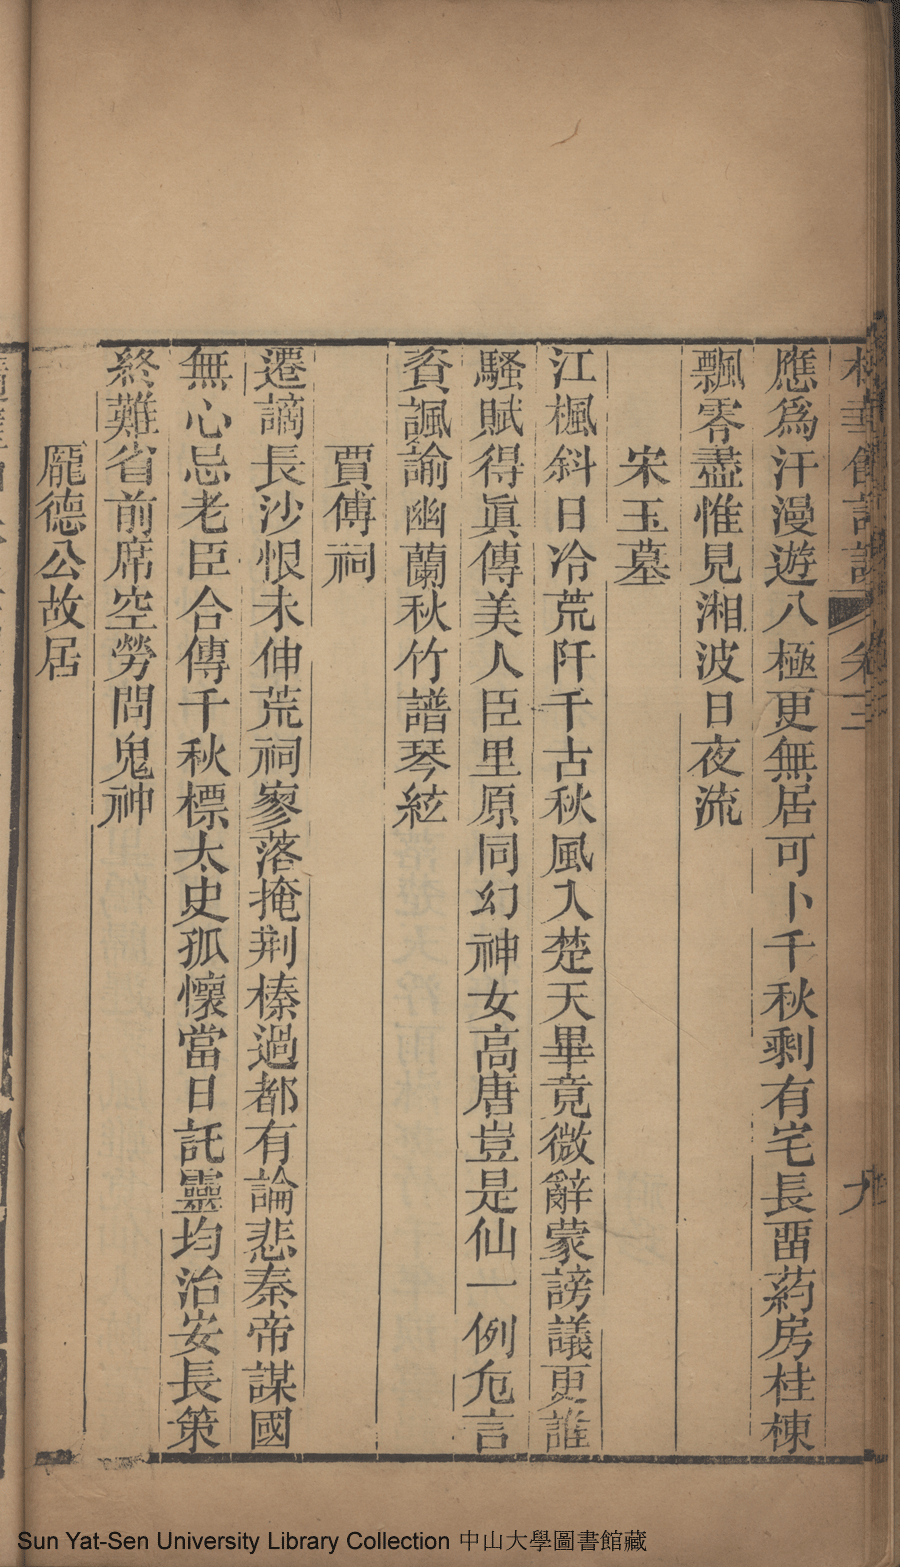 館詩 卷三 九
應爲汗漫遊八極更無居可卜千秋剩有宅長畱葯房桂棟
飄零盡惟見湘波日夜流
宋玉墓
江楓斜日冷荒阡千古秋風入楚天畢竟微辭蒙謗議更誰
騷賦得眞傳美人臣里原同幻神女高唐豈是仙一例卮言
資諷諭幽蘭秋竹譜琴絃
賈傅祠
遷謫長沙恨未伸荒祠寥落掩荆榛過都有論悲秦帝謀國
無心忌老臣合傳千秋標太史孤懷當日託靈均治安長策
終難省前席空勞問鬼神
龎德公故居
Sun Yat-Sen University Library Collection 中山大學圖書館藏